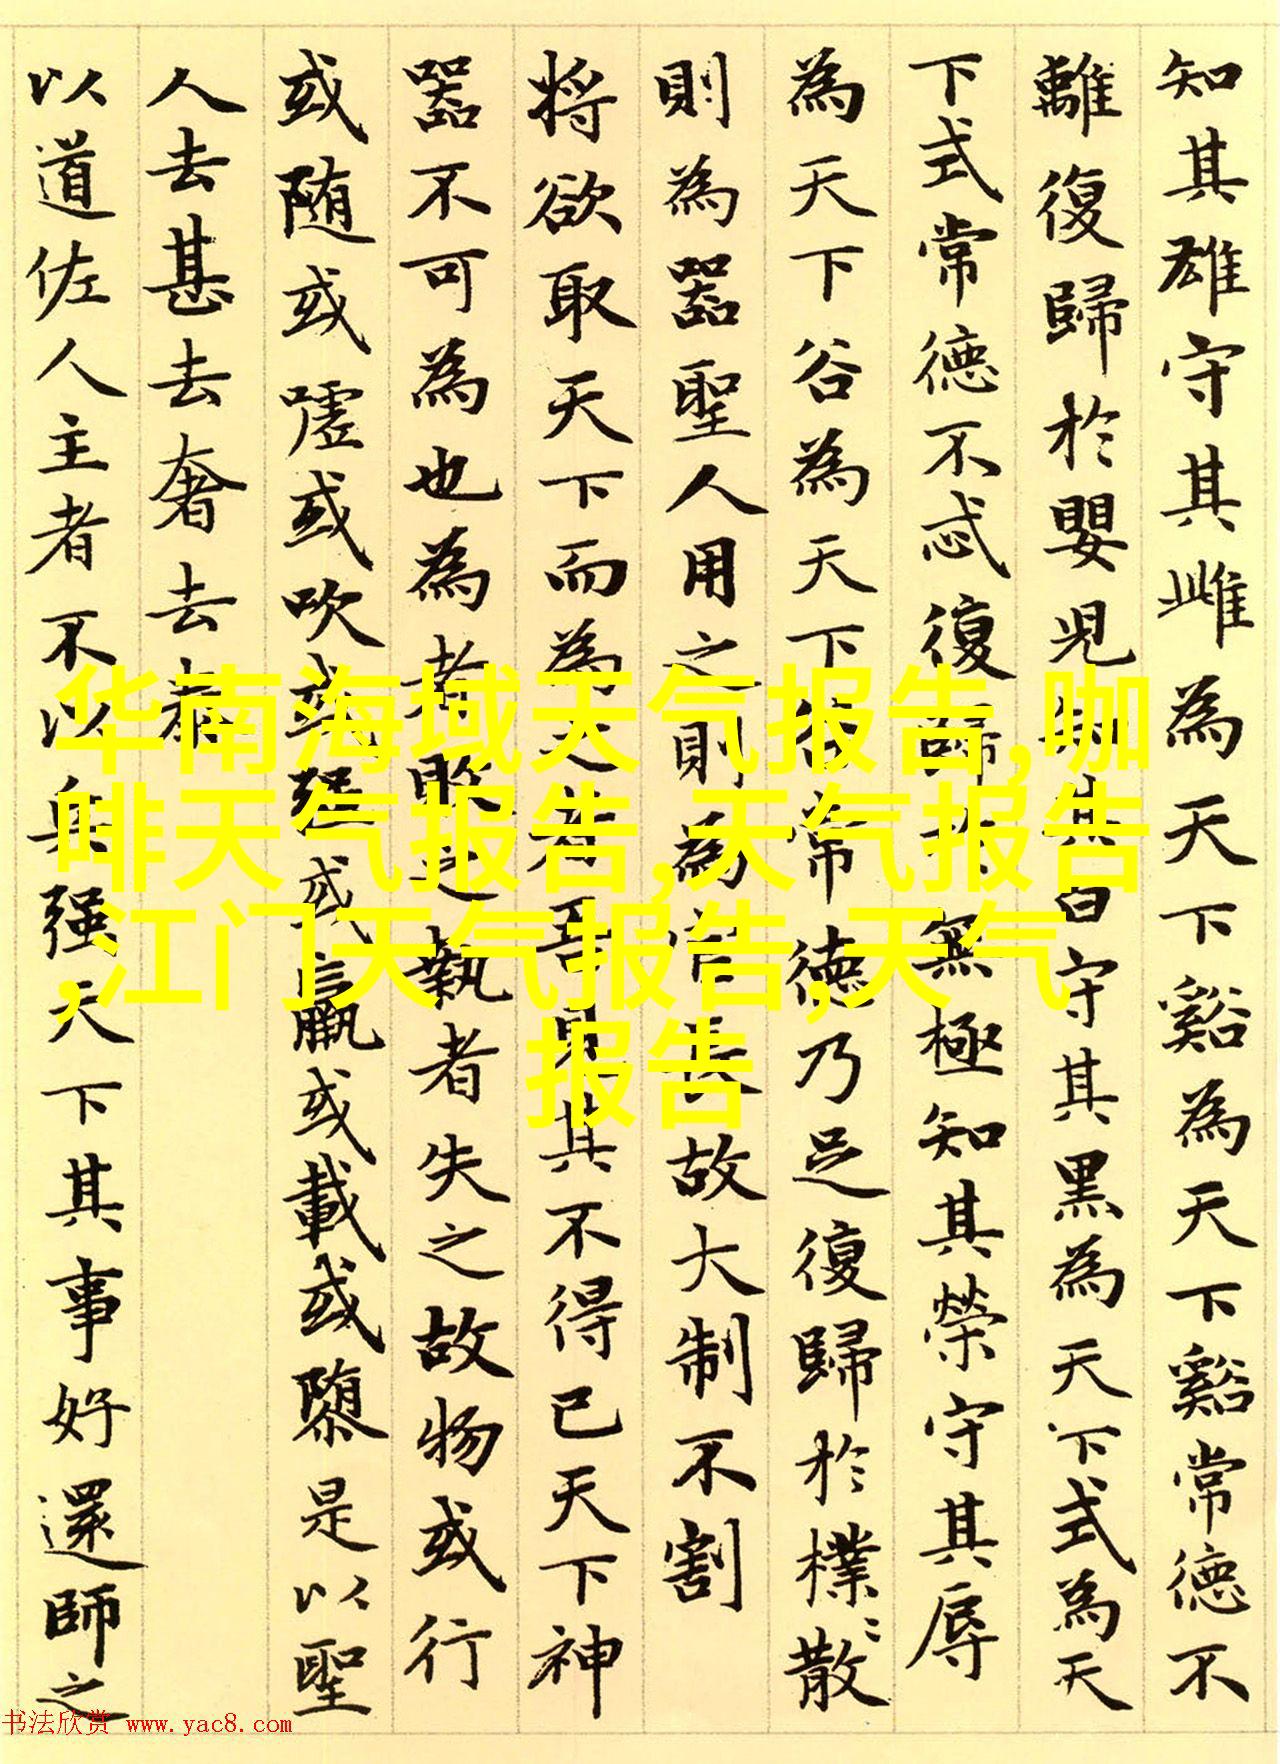 知其雄守其雌為天下谿為天下谿常德不
離復歸於嬰兒知其白守其黑為天下式為天
下式常德不忒復歸於無極知其榮守其辱
為天下谷為天下谷常德乃足復歸於樸樸散
則為器聖人用之則為官長故大制不割
將欲取天下而為之者吾見其不得已天下神
器不可為也為者敗之執者失之故物或行
或隨或噓或吹或強或羸或載或隳是以聖
人去甚去奢去泰
以道佐人主者不以兵强天下其事好還師之
华南海域天气报告,咖
啡天气报告,天气报告
,江门天气报告,天气
报告
书法欣赏 www.yac8.com